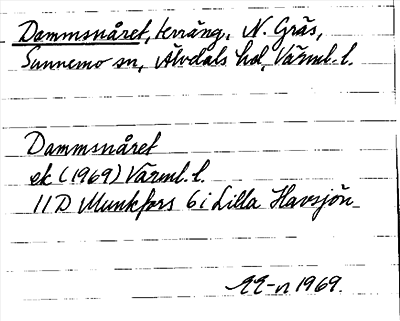 Dammsnåret, terräng, N. Gräs,
Sunnemo sn, Älvdals hd, Värml. l.
Dammsnåret
ek (1969) Värml. l.
11D Munkfors 6 i Lilla Havsjön
1969.